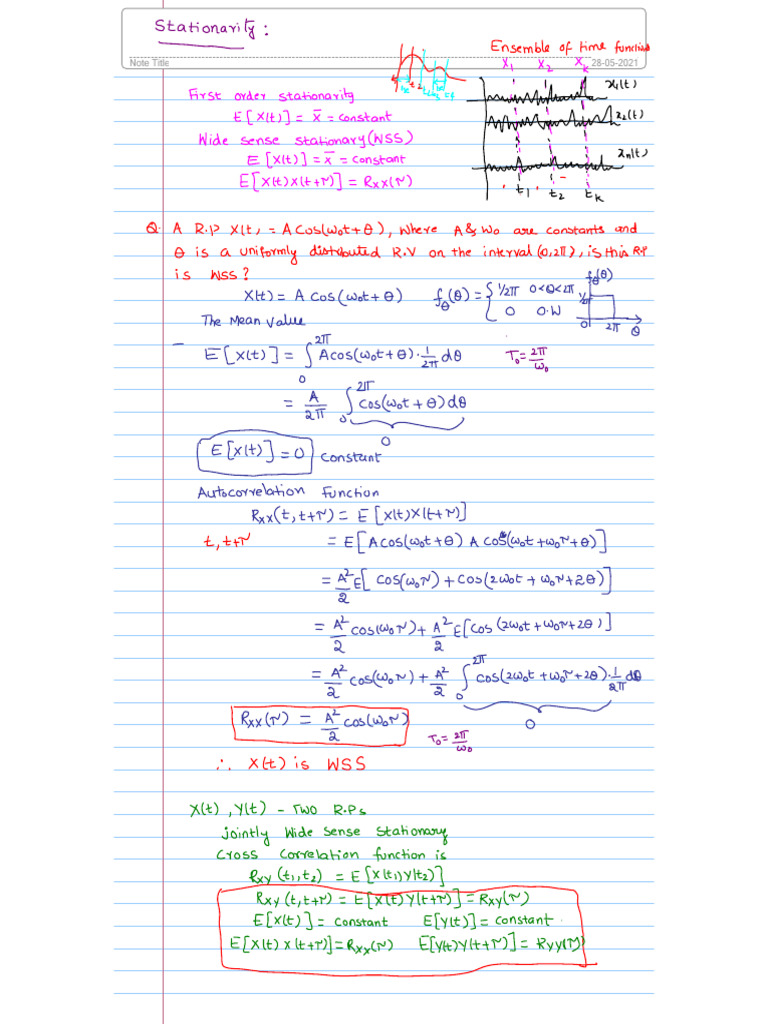 Stationarity :
Note Title
28-05-2021
Ensemble of time function
X₁ X₂ X_K
x₁(t)
x₂(t)
x_n(t)
t₁ t₂ t_K
First order stationarity
E[X(t)] = x̄ = constant
Wide sense stationary (WSS)
E[X(t)] = x̄ = constant
E[X(t)X(t+τ)] = R_XX(τ)
Q. A R.P X(t) = A Cos(ω₀t + θ), where A & ω₀ are constants and
θ is a uniformly distributed R.V on the interval (0,2π), is this R.P
is WSS?
X(t) = A cos(ω₀t + θ) f_θ(θ) = { 1/2π 0<θ<2π
0 O.W
f_θ(θ)
1/2π
0 2π θ
The Mean Value
E[X(t)] = ∫₀^2π A cos(ω₀t + θ) · 1/2π dθ T₀ = 2π/ω₀
= A/2π ∫₀^2π cos(ω₀t + θ) dθ
0
E[X(t)] = 0 constant
Autocorrelation Function
R_XX(t, t+τ) = E[X(t)X(t+τ)]
t, t+τ = E[A cos(ω₀t+θ) A cos(ω₀t + ω₀τ + θ)]
= A²/2 E[cos(ω₀τ) + cos(2ω₀t + ω₀τ + 2θ)]
= A²/2 cos(ω₀τ) + A²/2 E[cos(2ω₀t + ω₀τ + 2θ)]
= A²/2 cos(ω₀τ) + A²/2 ∫₀^2π cos(2ω₀t + ω₀τ + 2θ) · 1/2π dθ
0
R_XX(τ) = A²/2 cos(ω₀τ) T₀ = 2π/ω₀
∴ X(t) is WSS
X(t), Y(t) - Two R.Ps
jointly Wide sense stationary
Cross correlation function is
R_XY(t₁,t₂) = E[X(t₁)Y(t₂)]
R_XY(t, t+τ) = E[X(t)Y(t+τ)] = R_XY(τ)
E[X(t)] = constant E[Y(t)] = constant.
E[X(t)X(t+τ)] = R_XX(τ) E[Y(t)Y(t+τ)] = R_YY(τ)